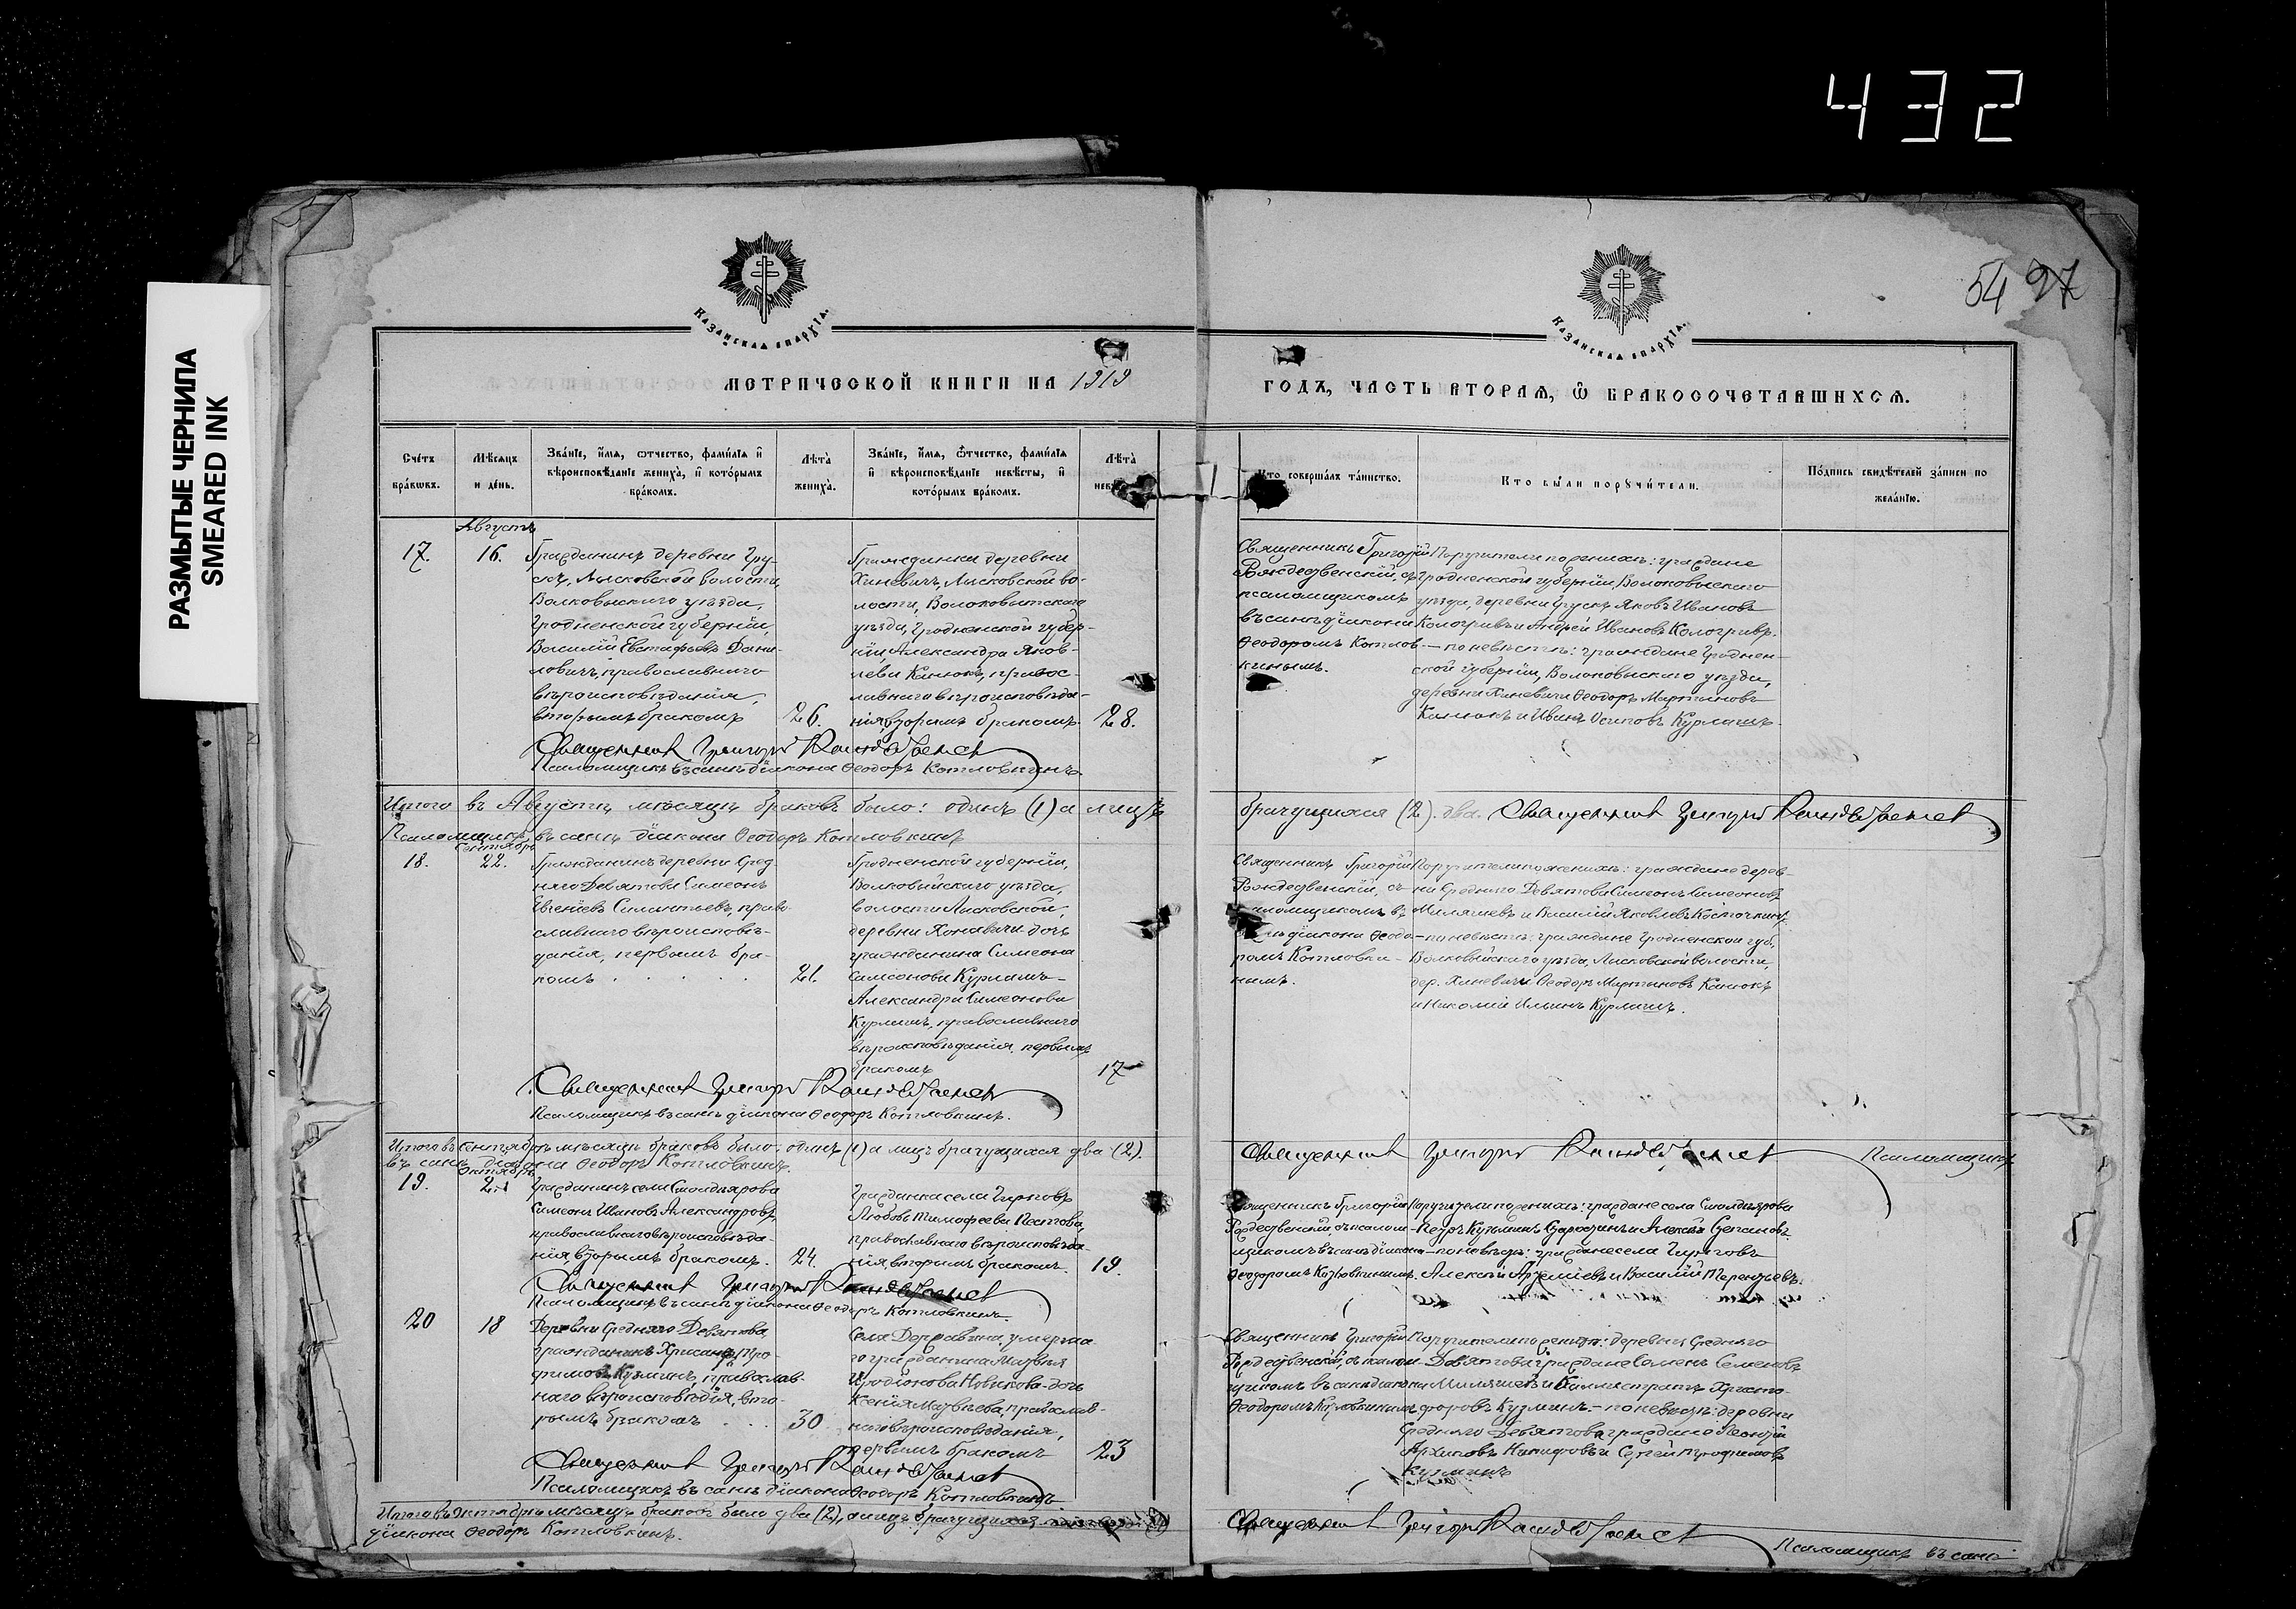 432
РАЗМЫТЫЕ ЧЕРНИЛА
SMEARED INK
54 97
КАЗАНСКАЯ ЕПАРХІЯ.
КАЗАНСКАЯ ЕПАРХІЯ.
МЕТРИЧЕСКОЙ КНИГИ НА 1919
ГОДЪ, ЧАСТЬ ВТОРАЯ, Ѡ БРАКОСОЧЕТАВШИХСЯ.
Счетъ браковъ.
Мѣсяцъ и день.
Званіе, имя, отчество, фамилія и вѣроисповѣданіе жениха, и которымъ бракомъ.
Лѣта жениха.
Званіе, имя, отчество, фамилія и вѣроисповѣданіе невѣсты, и которымъ бракомъ.
Лѣта
Кто совершалъ таинство.
Кто были поручители.
Подпись свидѣтелей записи по желанію.
Августъ
17.
16.
Гражданинъ деревни Гру-
скъ, Лысковской волости,
Волковыскаго уѣзда,
Гродненской губерніи,
Василій Евстафьевъ Дани-
ловичъ, православнаго
вѣроисповѣданія,
вторымъ бракомъ
26.
Гражданка деревни
Хиневичъ, Лысковской во-
лости, Волоковытскаго
уѣзда, Гродненской губер-
ніи, Александра Яков-
лева Канюкъ, правос-
лавнаго вѣроисповѣда-
нія, вторымъ бракомъ.
28.
Священникъ Григорій
Рождественскій, съ
псаломщикомъ
въ санѣ діакона
Феодоромъ Котлов-
кинымъ.
Поручители по женихѣ: граждане
Гродненской губерніи, Волоковыскаго
уѣзда, деревни Грускъ Яковъ Ивановъ
Кологривъ и Андрей Ивановъ Кологривъ.
— по невѣстѣ: граждане Гроднен-
ской губерніи, Волоковыскаго уѣзда,
деревни Хиневичи Феодоръ Мартыновъ
Канюкъ и Иванъ Осиповъ Курлашъ.
Священникъ Григорій Рождественскій
Псаломщикъ въ санѣ діакона Феодоръ Котловкинъ.
Итого въ Августѣ мѣсяцѣ браковъ было: одинъ (1) а лицъ
брачущихся (2). два. Священникъ Григорій Рождественскій
Псаломщикъ въ санѣ діакона Феодоръ Котловкинъ
Сентябрь
18.
22.
Гражданинъ деревни Сред-
няго Девятова Симеонъ
Евгеніевъ Силантьевъ, право-
славнаго вѣроисповѣ-
данія, первымъ бра-
комъ
21.
Гродненской губерніи,
Волковыйскаго уѣзда,
волости Лысковской,
деревни Хоневичи дочь
гражданина Симеона
Симеонова Курлашъ
Александра Симеонова
Курлашъ, православнаго
вѣроисповѣданія, первымъ
бракомъ
17
Священникъ Григорій
Рождественскій, съ
псаломщикомъ въ
санѣ діакона Феодо-
ромъ Котловки-
нымъ.
Поручители по женихѣ: граждане дерев-
ни Средняго Девятова Симеонъ Симеоновъ
Миляшевъ и Василій Яковлевъ Косточкинъ,
— по невѣстѣ: граждане Гродненской губ.
Волковыйскаго уѣзда, Лысковской волости,
дер. Хиневичи Феодоръ Мартыновъ Канюкъ
и Николай Ильинъ Курлашъ.
Священникъ Григорій Рождественскій
Псаломщикъ въ санѣ діакона Феодоръ Котловкинъ.
Итого въ Сентябрѣ мѣсяцѣ браковъ было: одинъ (1) а лицъ брачущихся два (2).
Священникъ Григорій Рождественскій Псаломщикъ
въ санѣ діакона Феодоръ Котловкинъ.
Октябрь
19.
Гражданинъ села Смолдіярова
Симеонъ Ивановъ Александровъ,
православнаго вѣроисповѣда-
нія, вторымъ бракомъ.
24.
Гражданка села
Любовь Тимофеева Пестова,
православнаго вѣроисповѣда-
нія, вторымъ бракомъ.
19.
Священникъ Григорій
Рождественскій, съ псалом-
щикомъ въ санѣ діакона
Феодоромъ Котловкинымъ.
Поручители по женихѣ: граждане села Смолдіярова
Петръ Кузьминъ и Алексѣй Степановъ.
— по невѣстѣ: граждане села
Алексѣй Артеміевъ и Василій Терентьевъ.
Священникъ Григорій Рождественскій
Псаломщикъ въ санѣ діакона Феодоръ Котловкинъ.
20
18
Деревни Средняго Девятова,
гражданинъ Хрисанфъ Тро-
фимовъ Кузминъ, православ-
наго вѣроисповѣдія, вто-
рымъ бракомъ
30
Села Державина, умерша-
го гражданина Матвѣя
Иродіонова Новикова дочь
Ксенія Матвѣева, православ-
наго вѣроисповѣданія,
первымъ бракомъ
23
Священникъ Григорій
Рождественскій, съ псалом-
щикомъ въ санѣ діакона
Феодоромъ Котловкинымъ
Поручители по женихѣ: деревни Средняго
Девятова граждане Семенъ Семеновъ
Миляшевъ и Каллистратъ Христо-
форовъ Кузминъ. — по невѣстѣ: деревни
Средняго Девятова граждане
Архиповъ и Сергѣй Трофимовъ
Кузминъ
Священникъ Григорій Рождественскій
Псаломщикъ въ санѣ діакона Феодоръ Котловкинъ.
Итого въ Октябрѣ мѣсяцѣ браковъ было два (2), а лицъ брачущихся
Священникъ Григорій Рождественскій Псаломщикъ въ санѣ
діакона Феодоръ Котловкинъ.